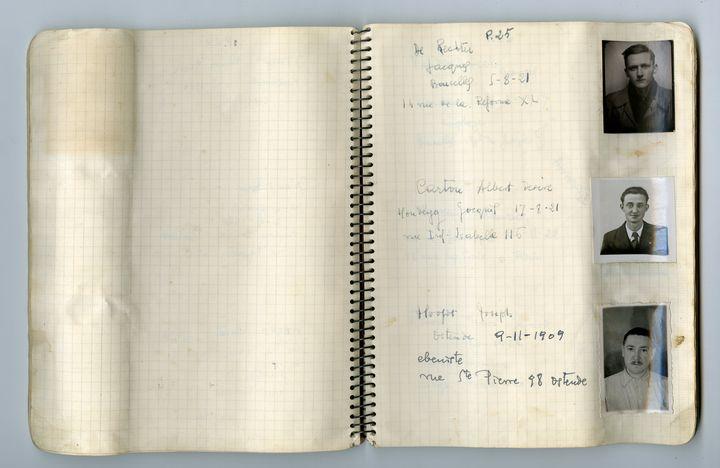 P.25
De Rechter
Jacques
Bruxelles 5-8-21
14 rue de la Réforme XL
Carton Albert Désiré
17-8-21
rue Inf. Isabelle 115
Joseph
Ostende 9-11-1909
ebeniste
rue Ste Pierre 98 Ostende